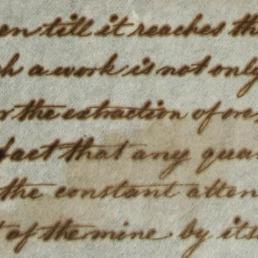 en till it reaches th
h a work is not only
r the extraction of ore,
fact that any qua
the constant atten
t of the mine by its